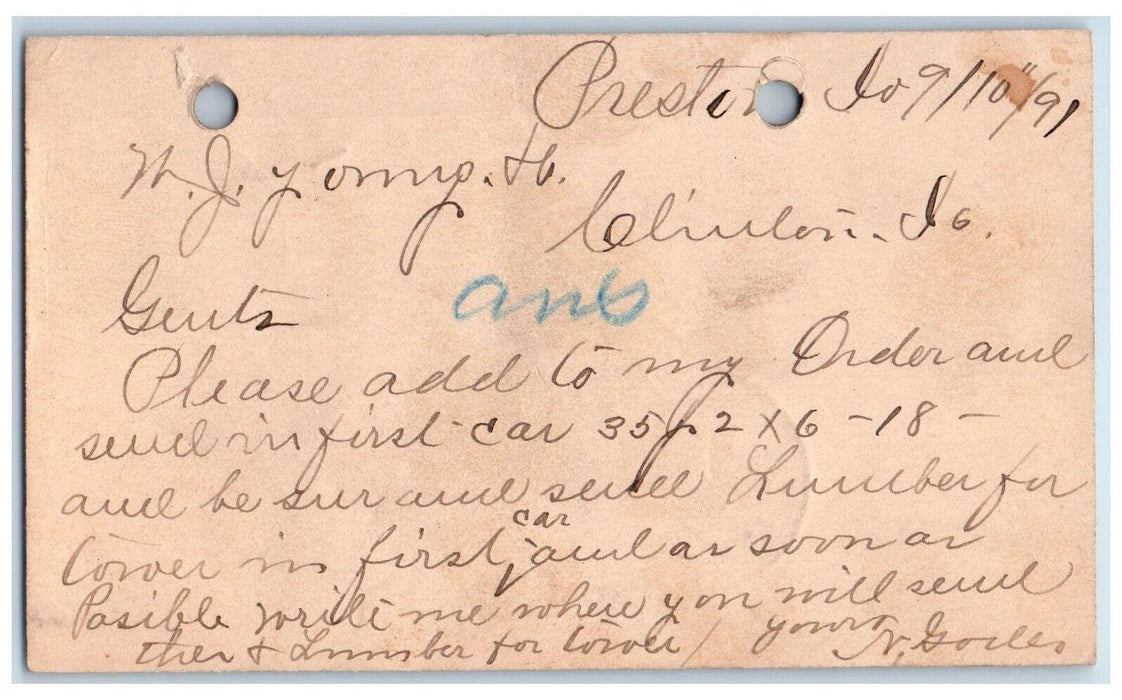 Preston Io 9/10"/91
W. J. Young. & Co.
Clinton. Io.
Gents
ans
Please add to my Order and
send in first car 35 p 2 x 6 - 18 -
and be sur and send Lumber for
tower in first car and as soon as
Pasible write me when you will send
ther & Lumber for tower / yours
N.